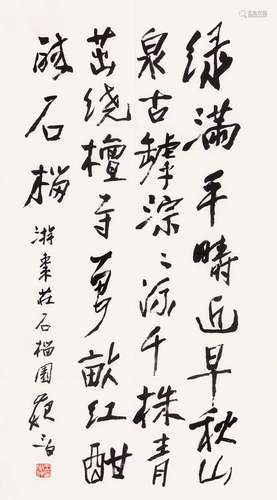 绿满平畴近早秋山
泉古罅淙〻流千株青
茁绕檀寺万亩红酣
石榴
游枣庄石榴园